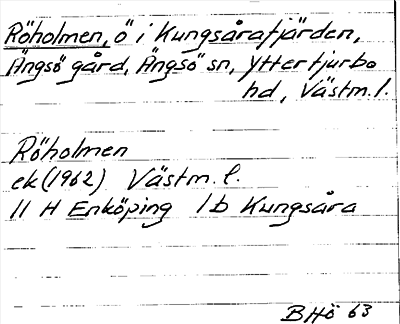 Röholmen, ö i Kungsårafjärden,
Ängsö gård, Ängsö sn, Yttertjurbo
hd, Västm. l.
Röholmen
ek (1962) Västm. l.
11 H Enköping 1b Kungsåra
BHö 63